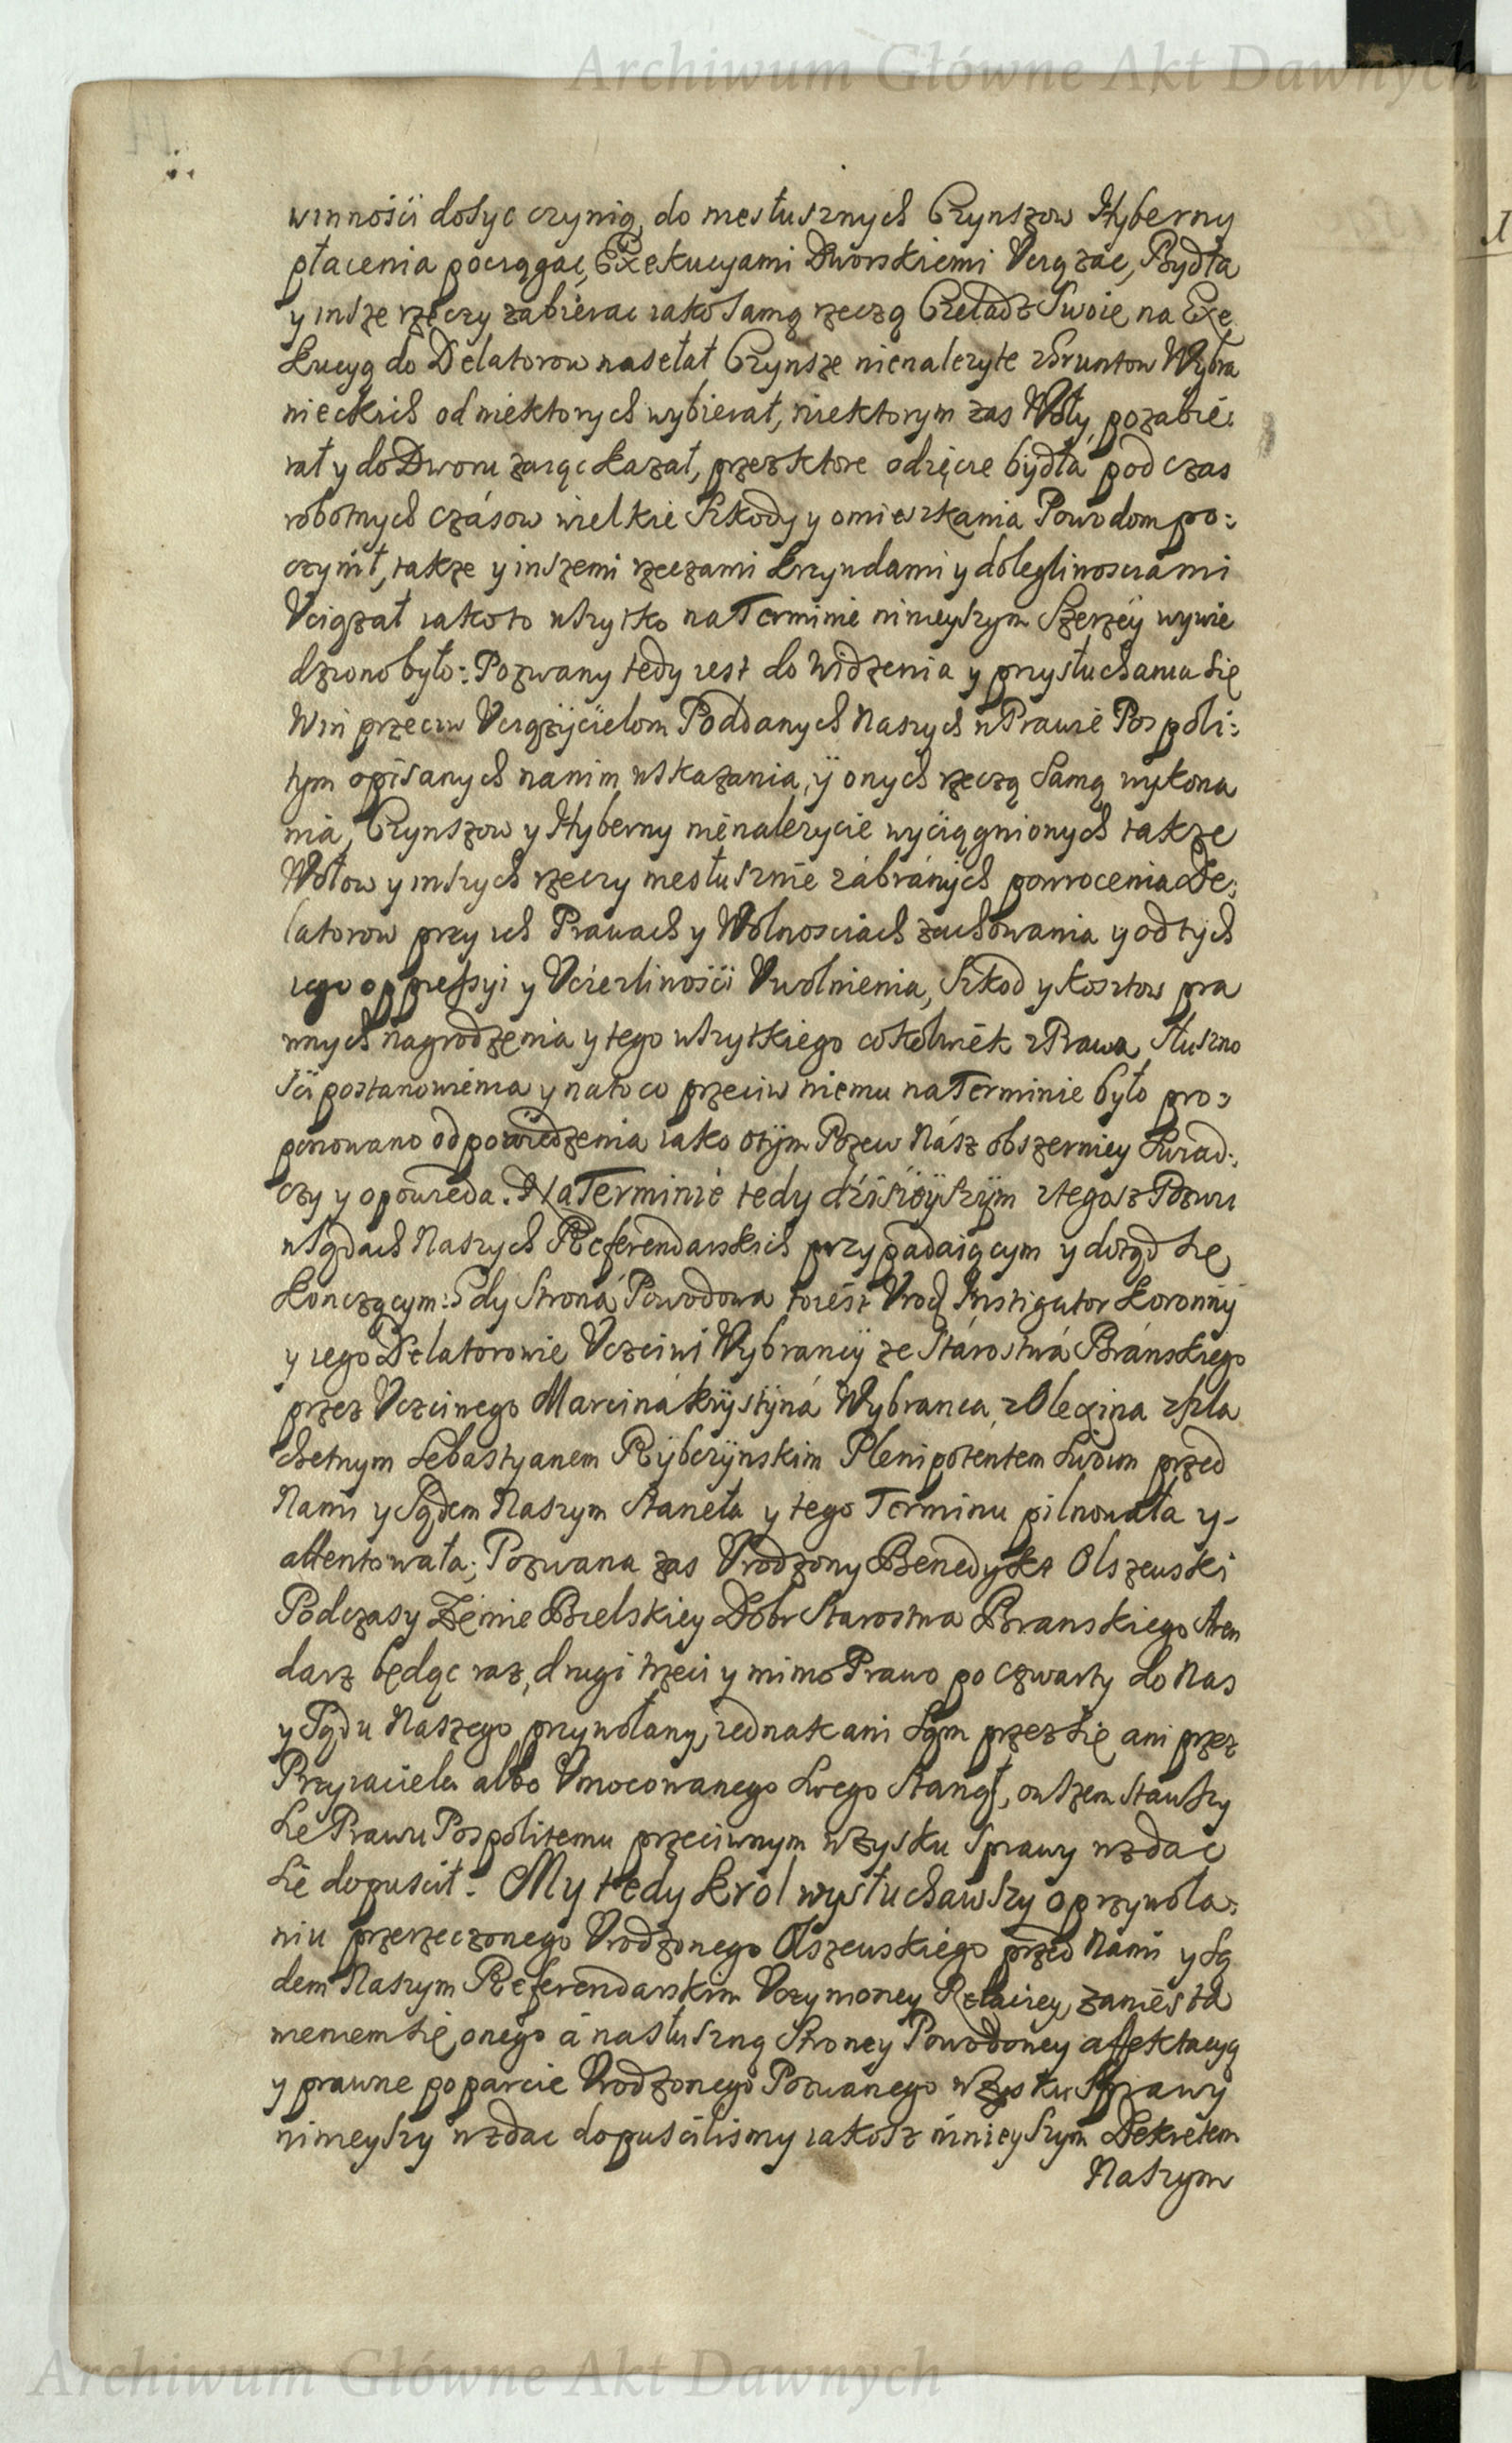 Archiwum Główne Akt Dawnych
winnośći dosyc czynią, do niesłusznych Czynszow Hyberny
płacenia pociągać, Exekucyami Dworskiemi Uciązać, Bydła
y insze rzeczy zabierac iakosz samą rzeczą Czeladz Swoię na Exe
kucyą do Delatorow nasełał Czynsze nienalezyte z Gruntow Wybra
nieckich od niektorych wybierał, niektorym zas Woły pozabie:
rał y do Dworu zaiąc kazał, przez ktore odięcie bydła pod czas
robotnych czásow wielkie Szkody y omieszkania Powodom po:
czynił, takze y inszemi rzeczami krzywdami y doległinosciami
Uciązał iako to wszytko na Terminie ninieyszym Szerzey wywie
dziono było: Pozwany tedy iest do Widzenia y przysłuchania się
Win przeciw Uciązycielom Poddanych Naszych w Prawie Pospoli:
tym opisanych na nim wskazania, y onych rzeczą samą wykona
nia, Czynszow y Hyberny nienalezycie wyciągnionych takze
Wołow y inszych rzeczy niesłusznie zábránych powrocenia De:
latorow przy ich Prawach y Wolnosciach zachowania y od tych
iego oppressyi y Uciezlinośći Uwolnienia, Szkod y kosztow pra
wnych nagrodzenia y tego wszytkiego cokolwiek z Prawa Słuszno
śći postanowienia y na to co przeciw niemu na Terminie było pro:
ponowano odpowiedzenia iako o tym Pozew Nász obszerniey Swiad:
czy y opowieda. Na Terminie tedy dzisieyszym z tegosz Pozwu
w Sądach Naszych Referendarskich przypadaiącym y dotąd się
kończącym: Gdy Stroná Powodowa to iest Urod Instigator koronny
y iego Delatorowie Uczciwi Wybrancy ze Stárostwá Bránskiego
przez Uczciwego Marciná krystyná Wybranca z Olegina z Szla
chetnym Sebastyanem Rybczynskim Plenipotentem Swoim przed
Nami y Sądem Naszym Staneła y tego Terminu pilnowała y
attentowała; Pozwana zas Urodzony Benedykt Olszewski
Podczasy Zemie Bielskiey Dobr Starostwa Branskiego Aren
darz będąc raz, drugi trzeci y mimo Prawo po czwarty do Nas
y Sądu Naszego przywołany, iednak ani Sąm przez się ani przez
Przyiaciela albo Umocowanego Swego Stanął, owszem stawszy
Se Prawu Pospolitemu przeciwnym w Zysku Sprawy wzdac
Sie dopuscił. My tedy krol wysłuchawszy o przywoła:
niu przerzeczonego Urodzonego Olszewskiego przed Nami y Są
dem Naszym Referendarskim Uczymoney Relaciey, zanies ta
wieniem się onego á na słuszną Stroney Powodowey affektacyą
y prawne poparcie Urodzonego Pozwanego w Zysku Sprawy
ninieyszy wzdac dopuscilismy iakosz ninieyszym Dekretem
Naszym
Archiwum Główne Akt Dawnych